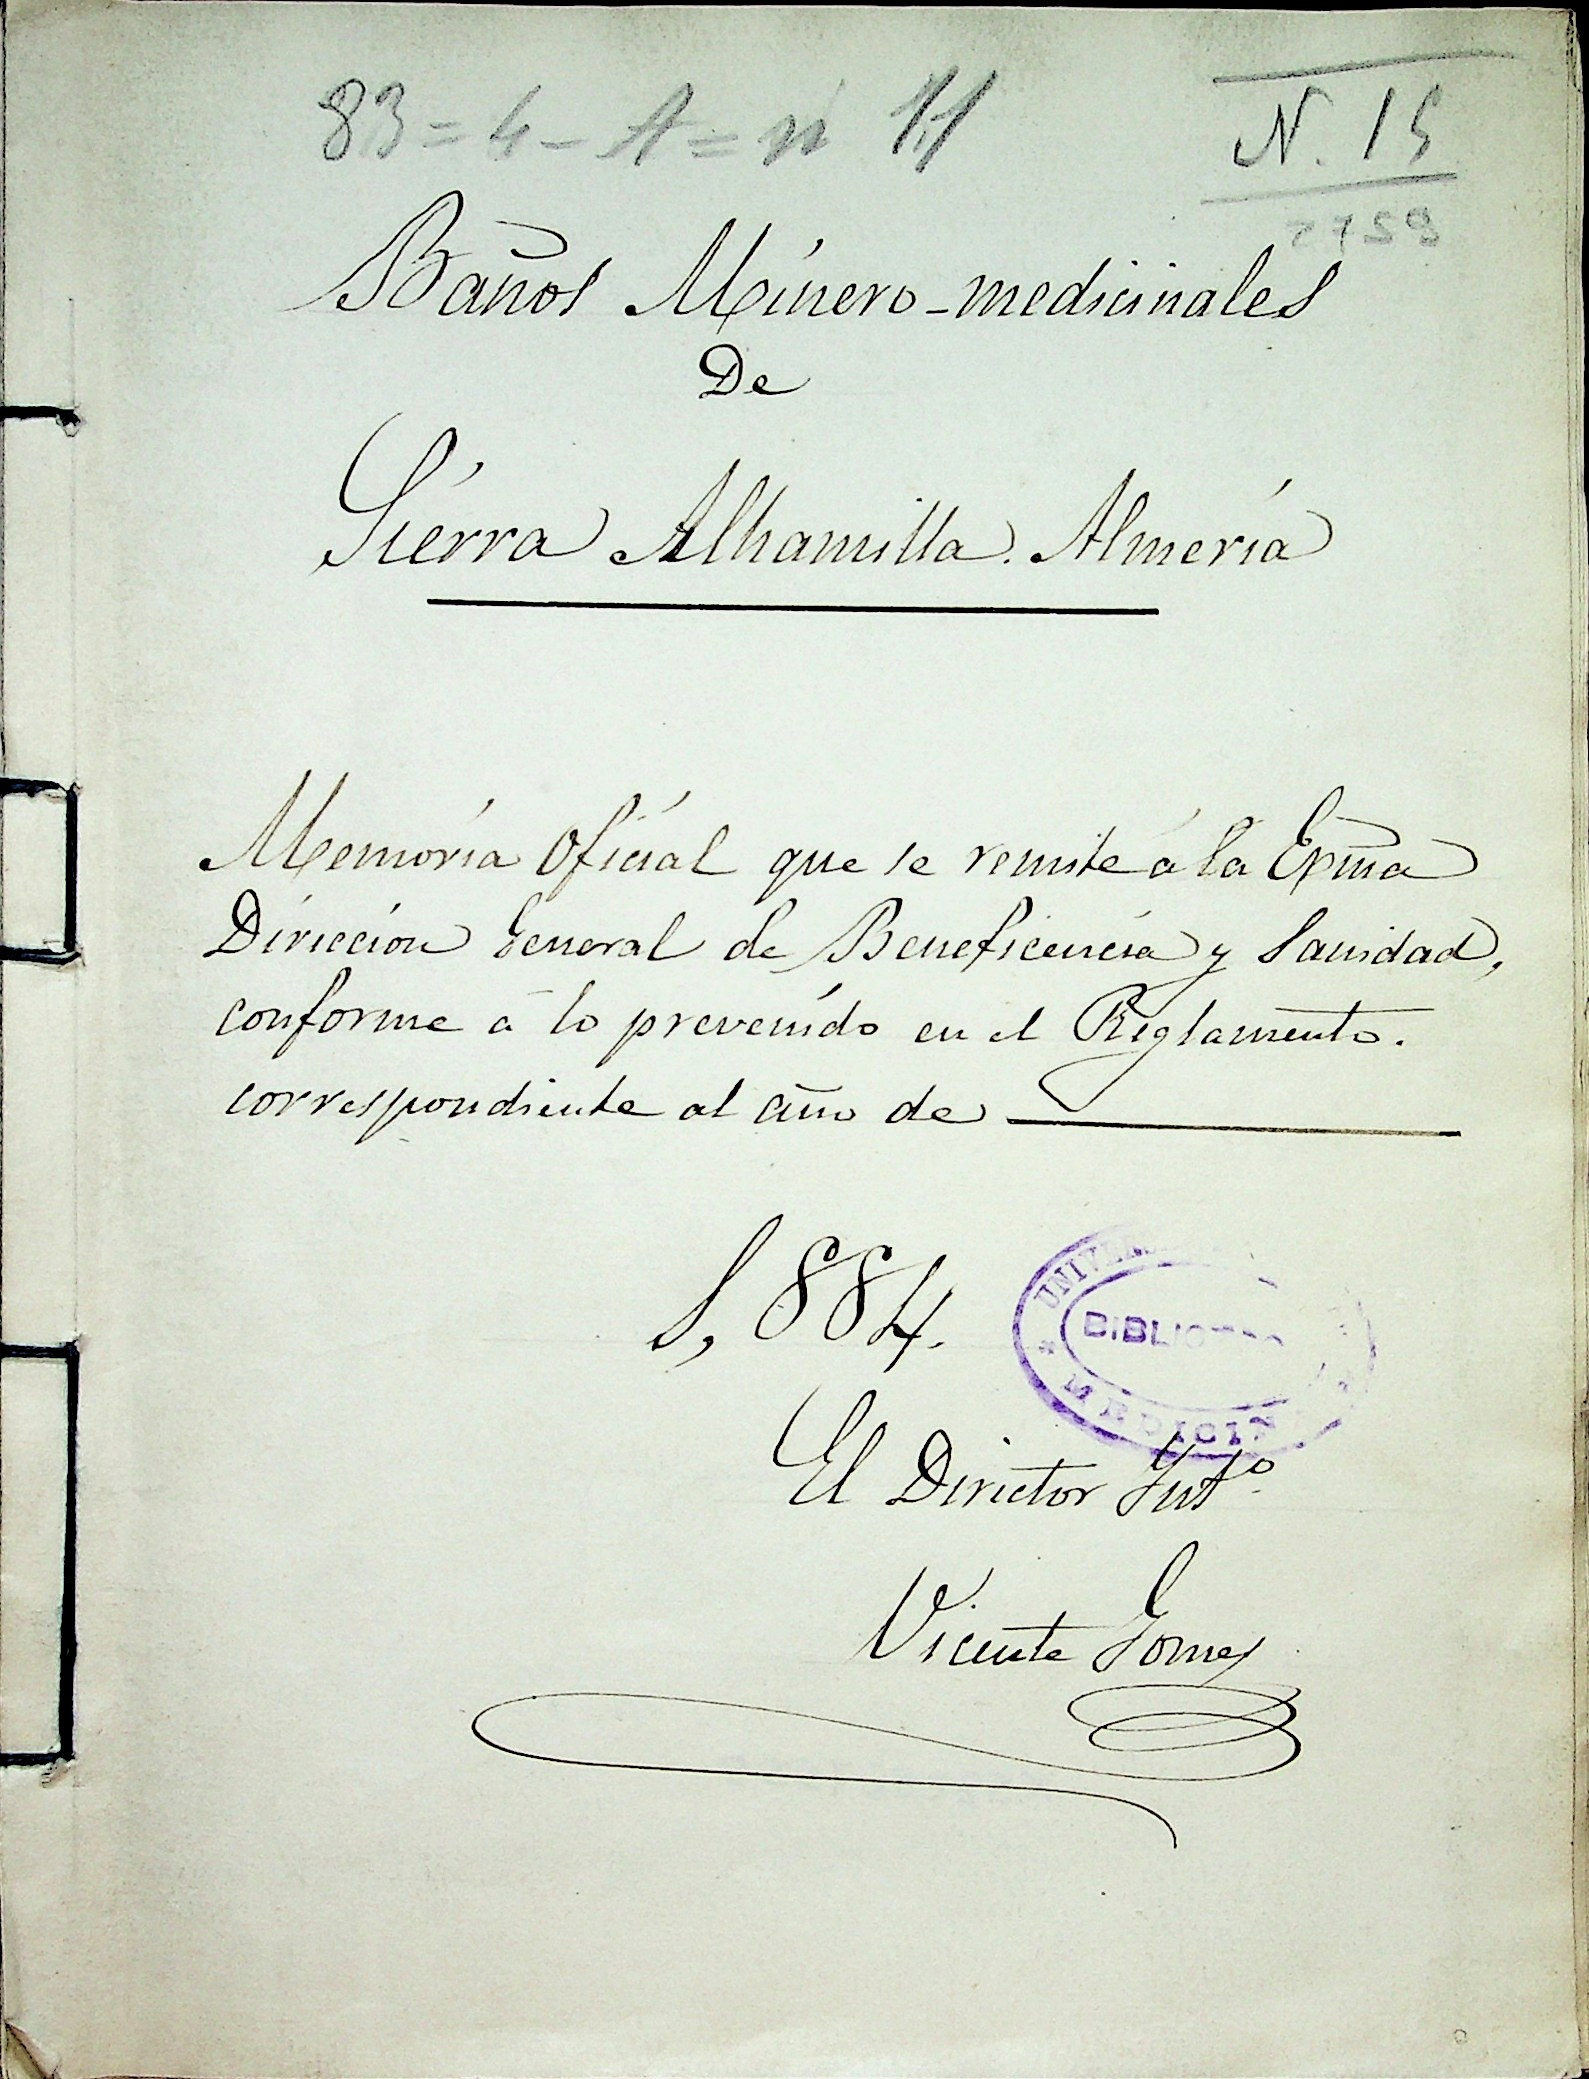 83=4-A=n 11
N. 15
Baños Minero-medicinales
De
Sierra Alhamilla. Almería
Memoria Oficial que se remite á la Exma
Dirección General de Beneficencia y Sanidad,
conforme á lo prevenido en el Reglamento.
correspondiente al año de
1,884.
BIBLIO
MEDICIN
El Director Intº
Vicente Gomez